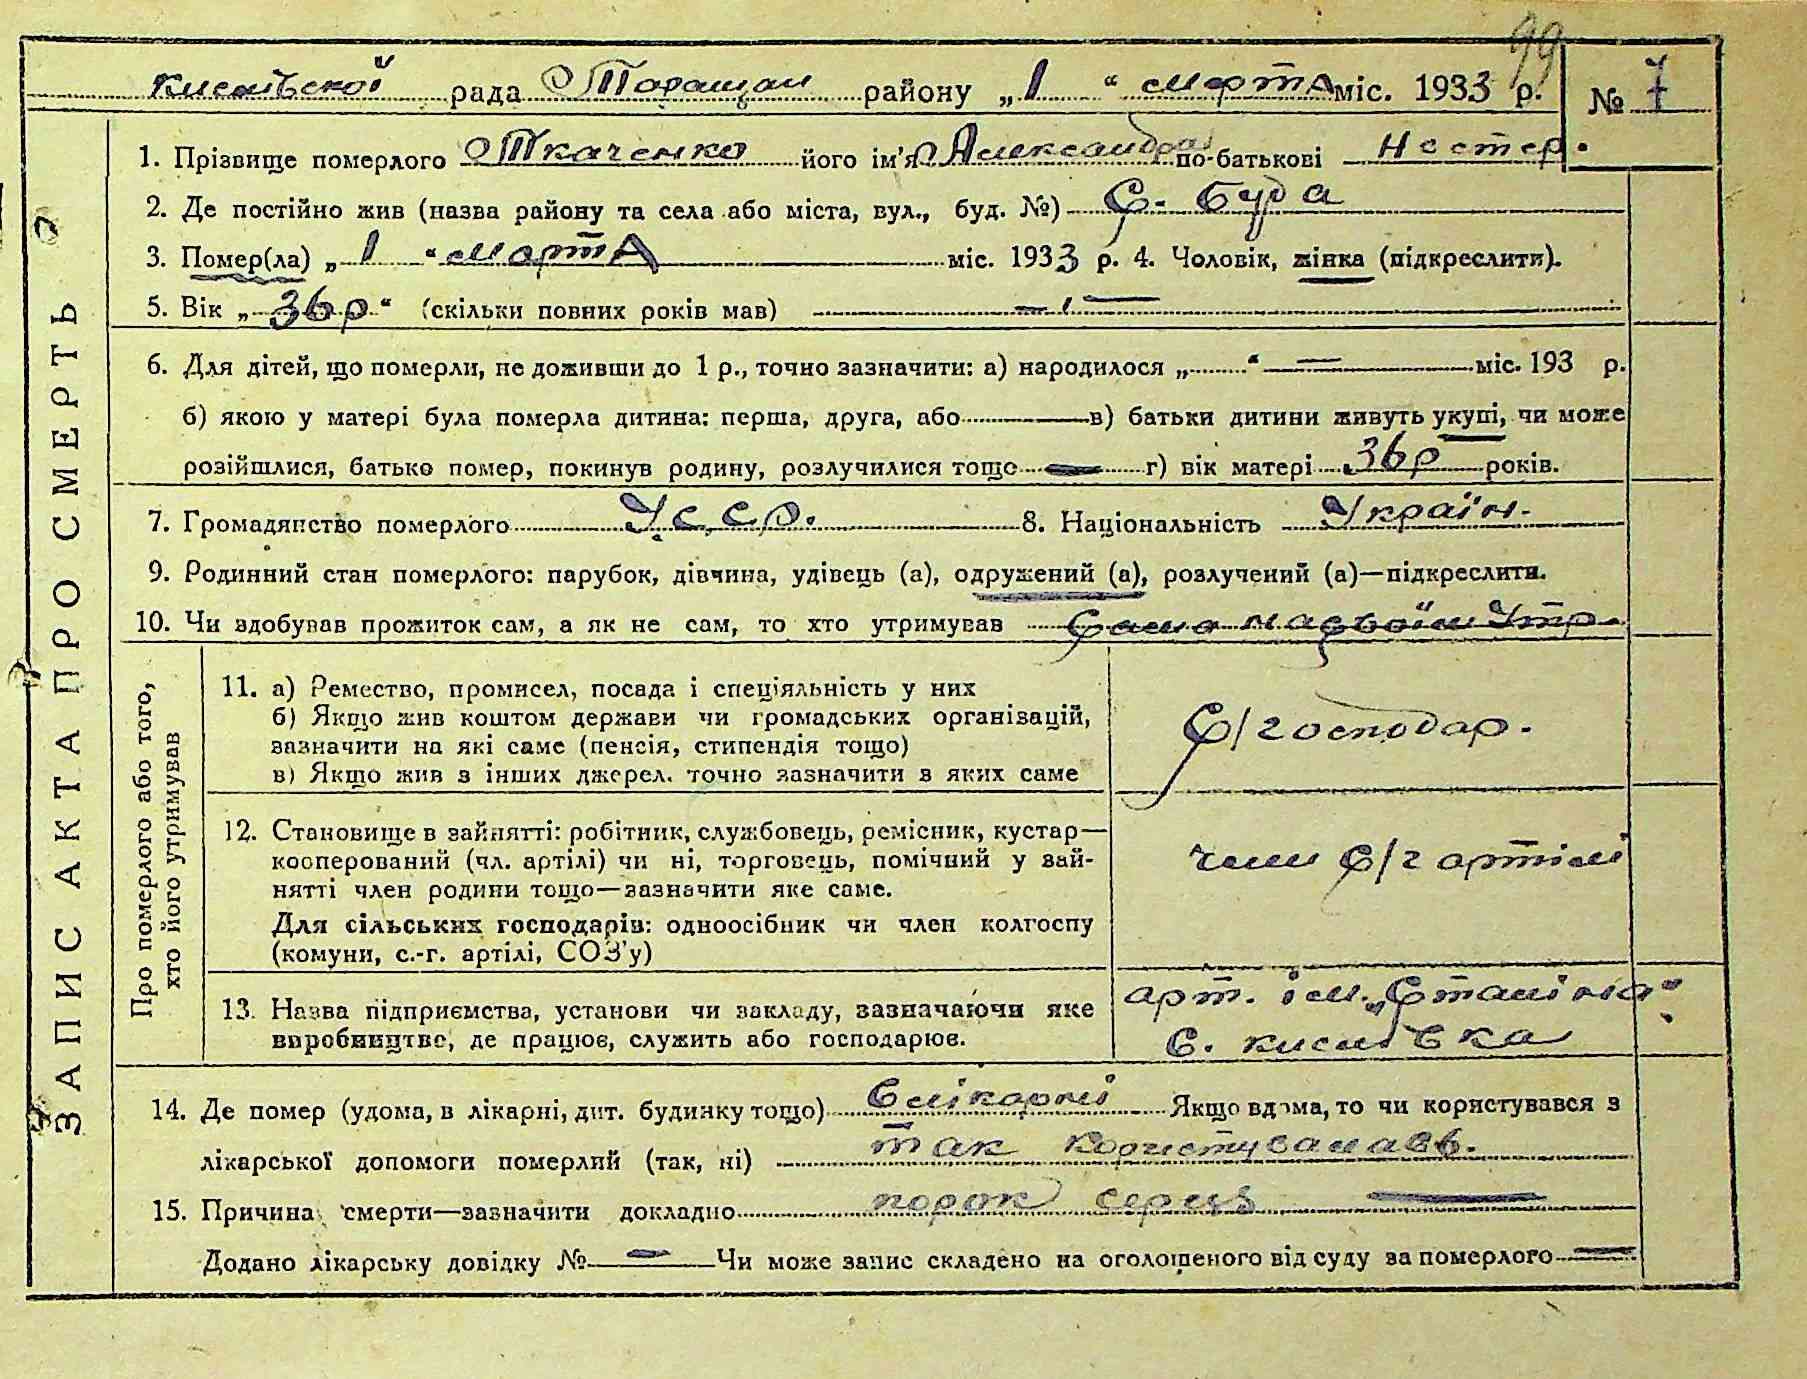 99
Кислівської рада Таращан району „ 1 “ марта міс. 1933 р. № 7
1. Прізвище померлого Ткаченко його ім'я Александра по-батькові Нестер.
2. Де постійно жив (назва району та села або міста, вул., буд. №) С. Буда
3. Помер(ла) „ 1 “ марта міс. 1933 р. 4. Чоловік, жінка (підкреслити).
5. Вік „ 36 р “ (скільки повних років мав) — „ —
6. Для дітей, що померли, не доживши до 1 р., точно зазначити: а) народилося „ “ — міс. 193 р.
б) якою у матері була померла дитина: перша, друга, або в) батьки дитини живуть укупі, чи може
розійшлися, батько помер, покинув родину, розлучилися тощо — г) вік матері 36 р років.
7. Громадянство померлого УССР. 8. Національність Україн.
9. Родинний стан померлого: парубок, дівчина, удівець (а), одружений (а), розлучений (а)—підкреслити.
10. Чи здобував прожиток сам, а як не сам, то хто утримував Сама
ЗАПИС АКТА ПРО СМЕРТЬ
Про померлого або того,
хто його утримував
11. а) Ремество, промисел, посада і спеціяльність у них
б) Якщо жив коштом держави чи громадських організацій,
зазначити на які саме (пенсія, стипендія тощо)
в) Якщо жив з інших джерел, точно зазначити з яких саме
С/господар.
12. Становище в зайнятті: робітник, службовець, ремісник, кустар—
кооперований (чл. артілі) чи ні, торговець, помічний у зай-
нятті член родини тощо—зазначити яке саме.
Для сільських господарів: одноосібник чи член колгоспу
(комуни, с.-г. артілі, СОЗ'у)
член с/г артілі
13. Назва підприємства, установи чи закладу, зазначаючи яке
виробництво, де працює, служить або господарює.
арт. ім. „Сталіна“
с. Кислівка
14. Де помер (удома, в лікарні, дит. будинку тощо) в лікарні Якщо вдома, то чи користувався з
лікарської допомоги померлий (так, ні) так користувалась.
15. Причина смерти—зазначити докладно порок серця —
Додано лікарську довідку № — Чи може запис складено на оголошеного від суду за померлого —